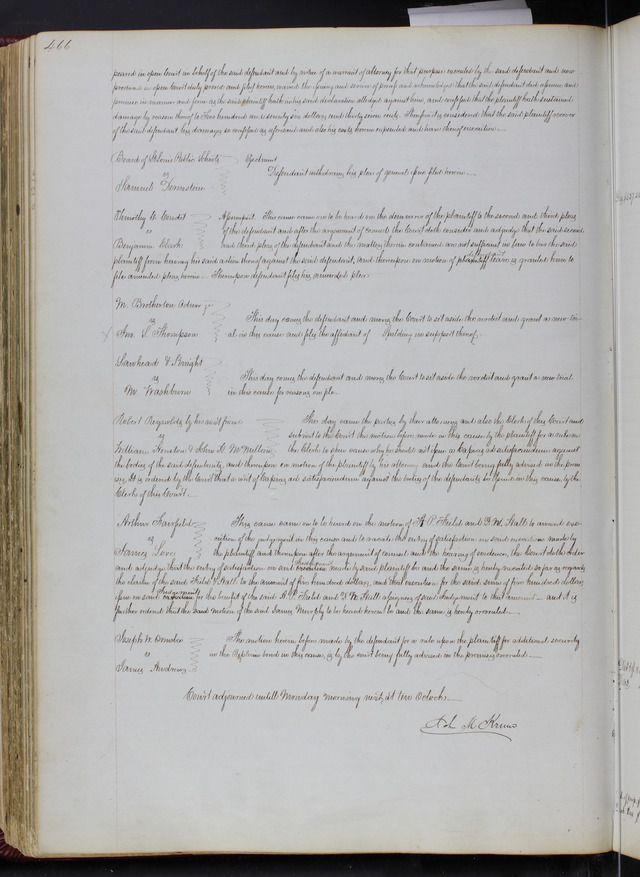 466
peared in open Court in behalf of the said defendant and by virtue of a warrant of attorney for that purpose executed by the said defendant and now
produced in open Court duly proved and filed herein, waived the issuing and service of process and acknowledged that the said defendant did assume and
promise in manner and form as the said plaintiff hath in his said declaration alledged against him, and confessed that the plaintiff hath sustained
damage by reason thereof to Two hundred and seventy six dollars and thirty seven cents. Therefore it is considered that the said plaintiff recover
of the said defendant his damages so confessed as aforesaid and also his costs herein expended and have thereof execution.
Board of St Louis Public Schools
Ejectment
vs
Defendant withdraws his plea of general issue filed herein.
Samuel
Timothy C.
Assumpsit. This cause came on to be heard on the demurrer of the plaintiff to the second and third pleas
vs
of the defendant and after the argument of counsel the Court doth consider and adjudge that the said second
Benjamin Clark
and third pleas of the defendant and the matters therein contained are not sufficient in law to bar the said
plaintiff from having his said action thereof against the said defendant, and thereupon on motion of defendant leave is granted him to
file amended pleas herein. Thereupon defendant files his amended pleas
M. Brotherton Admr
vs
This day comes the defendant and moves the Court to set aside the verdict and grant a new tri-
Jno. S. Thompson
al in this cause and files the affidavit of Spalding in support thereof.
& Knight
vs
This day comes the defendant and moves the Court to set aside the verdict and grant a new trial
Washburn
in this cause for reasons on file.
Robert Reynolds by his next friend
This day came the parties by their attorneys and also the Clerk of this Court and
vs
submit to the Court the motion before made in this cause by the plaintiff for a rule on
William Houston & John McMellon
the Clerk to shew cause why he should not issue a Capias ad satisfaciendum against
the bodies of the said defendants, and thereupon on motion of the plaintiff by his attorney and the Court being fully advised in the prem-
ises, It is ordered by the Court that a writ of Capias ad satisfaciendum against the bodies of the defendants be issued in this cause by the
Clerk of this Court.
Arthur Fairfield
This cause came on to be heard on the motion of A. P. Field and D. W. Hall to amend exe-
vs
cution of the judgement in this cause and to vacate the entry of satisfaction on said execution made by
James Love
the plaintiff and thereupon after the argument of counsel and the hearing of evidence, the Court doth order
and adjudge that the entry of satisfaction on said Judgement made by said plaintiff be and the same is hereby vacated so far as regards
the claim of the said Field & Hall to the amount of five hundred dollars, and that execution for the said sum of five hundred dollars
issue on said Judgement for the benefit of the said A. P. Field and D. W. Hall assignees of said Judgement to that amount and it is
further ordered that the said motion of the said James Murphy to be heard herein be and the same is hereby overruled.
Joseph W.
The motion herein before made by the defendant for a rule upon the plaintiff for additional security
vs
in the Replevin bond in this cause, is by the court being fully advised in the premises overruled.
James Andrews
Court adjourned untill Monday morning next, at ten Oclock.
M Krum